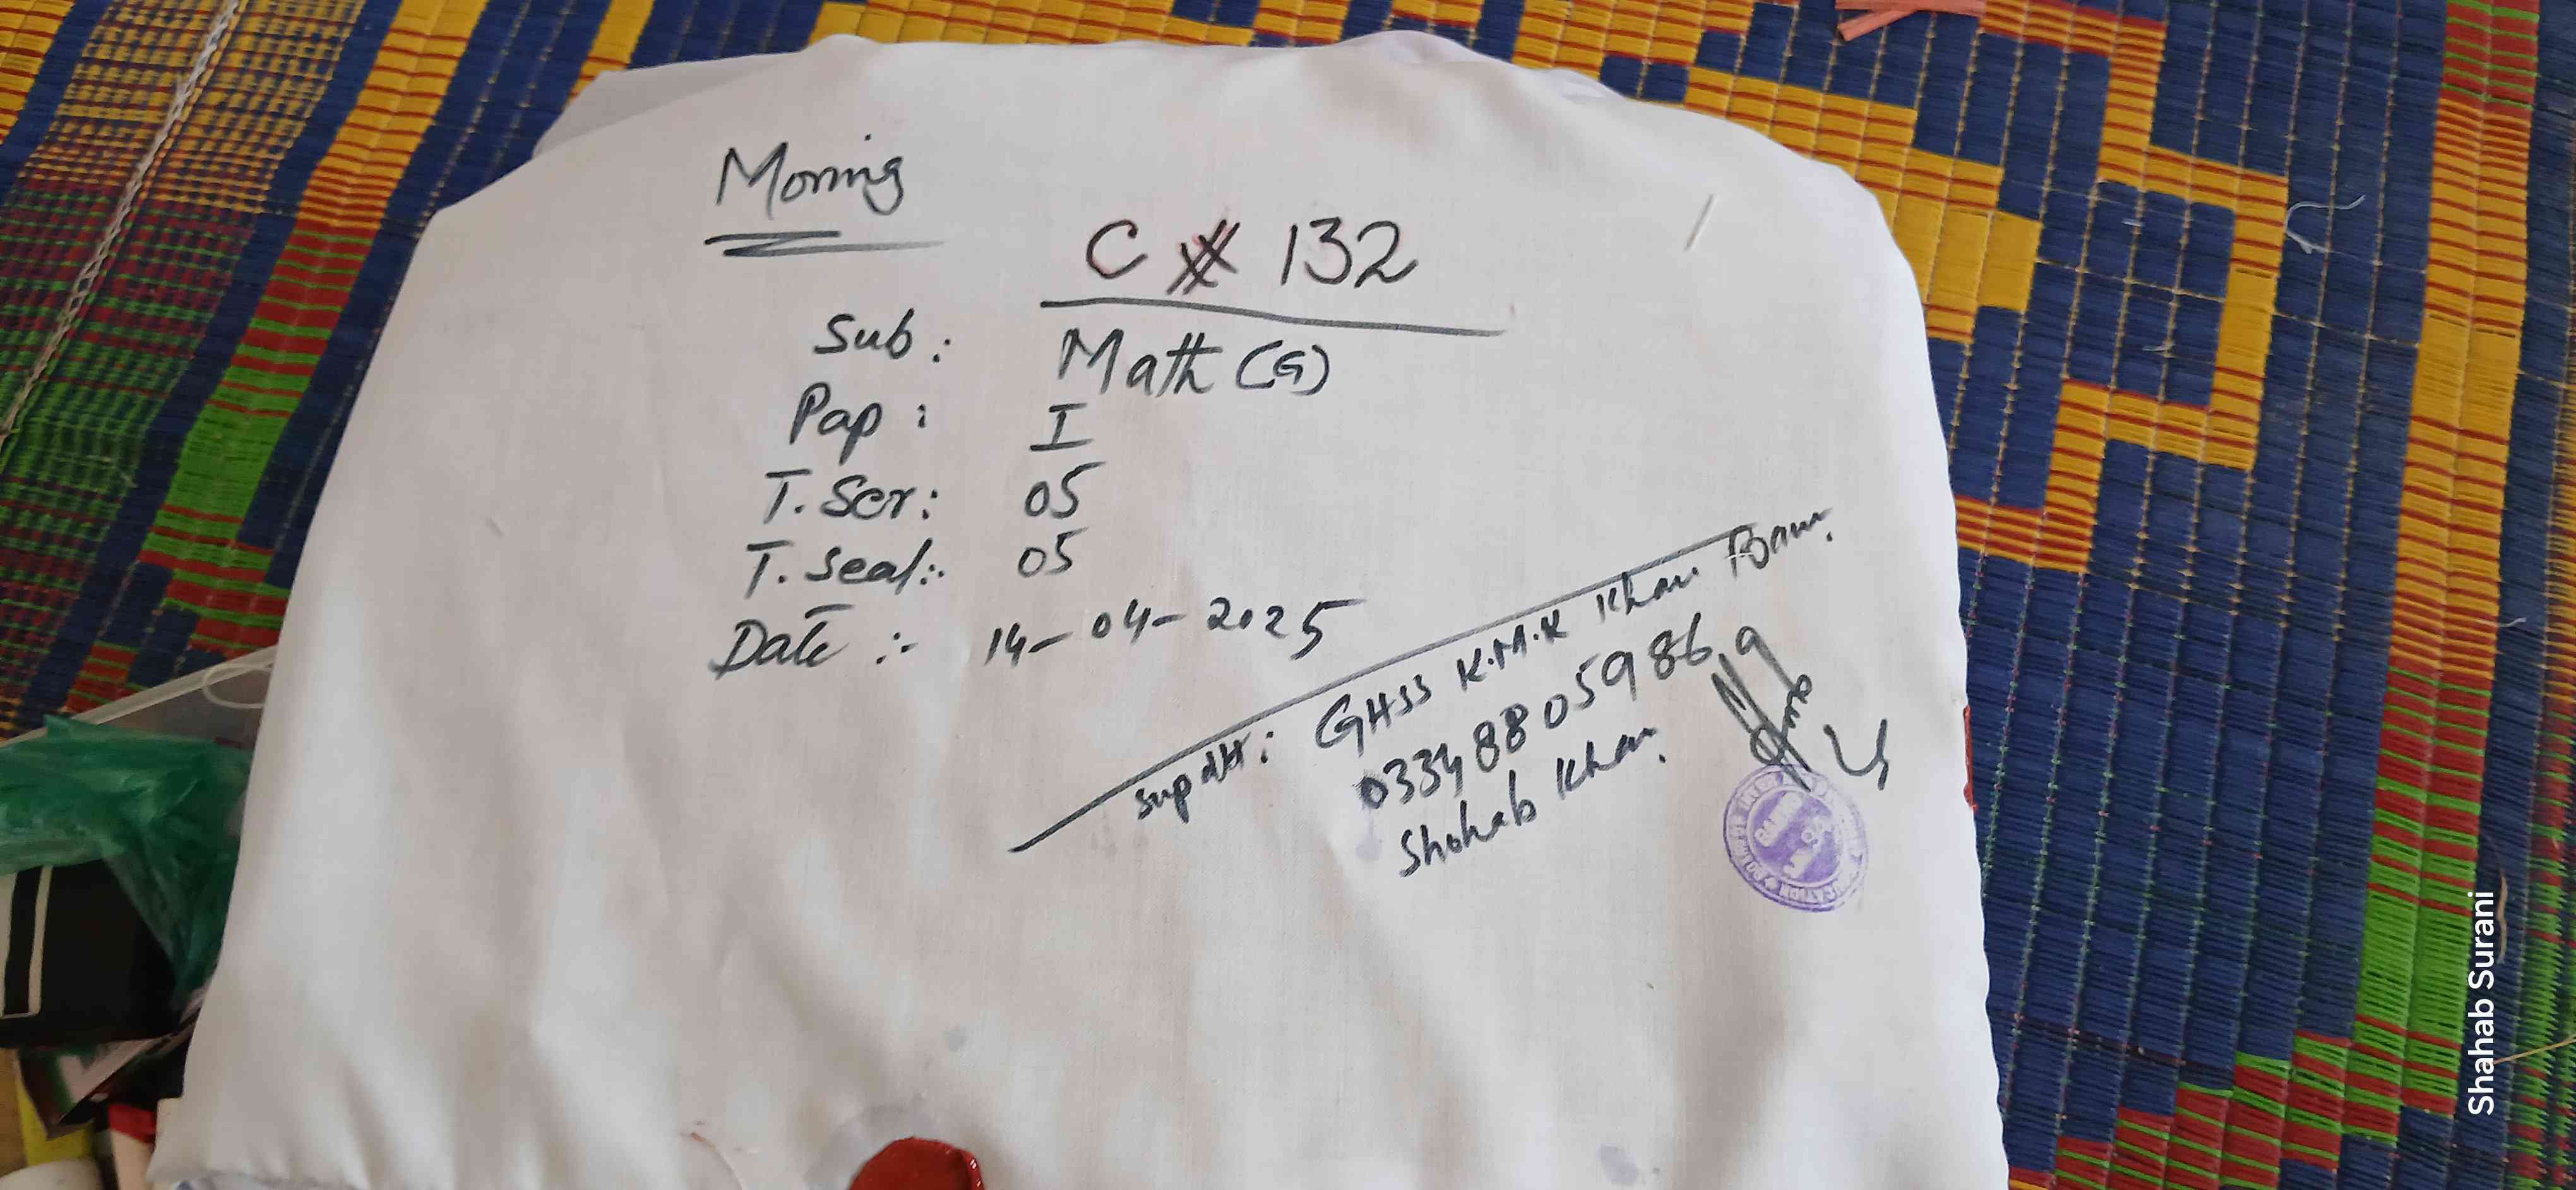 Morning
C # 132
Sub: Math (G)
Pap: I
T. Scr: 05
T. Seal:- 05
Date :- 14-04-2025
Supdtt: GHSS K.M.K Khan
03348805986
Shohab Khan.
Shahab Surani